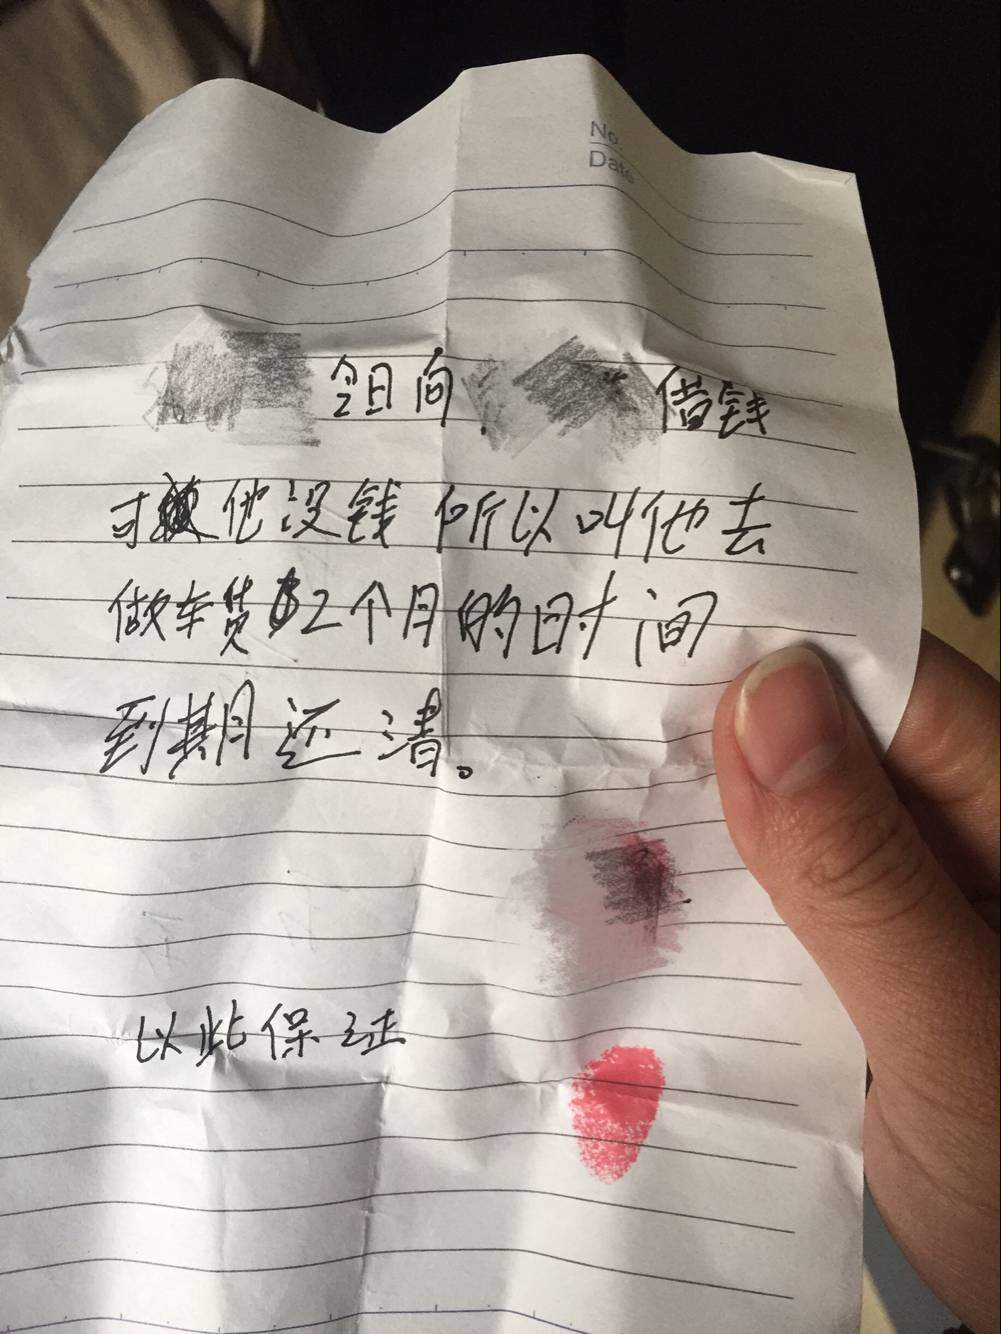 No.
Date
今日向 借钱
他没钱 所以叫他去
做车贷 2个月的时间
到期还清。
以此保证